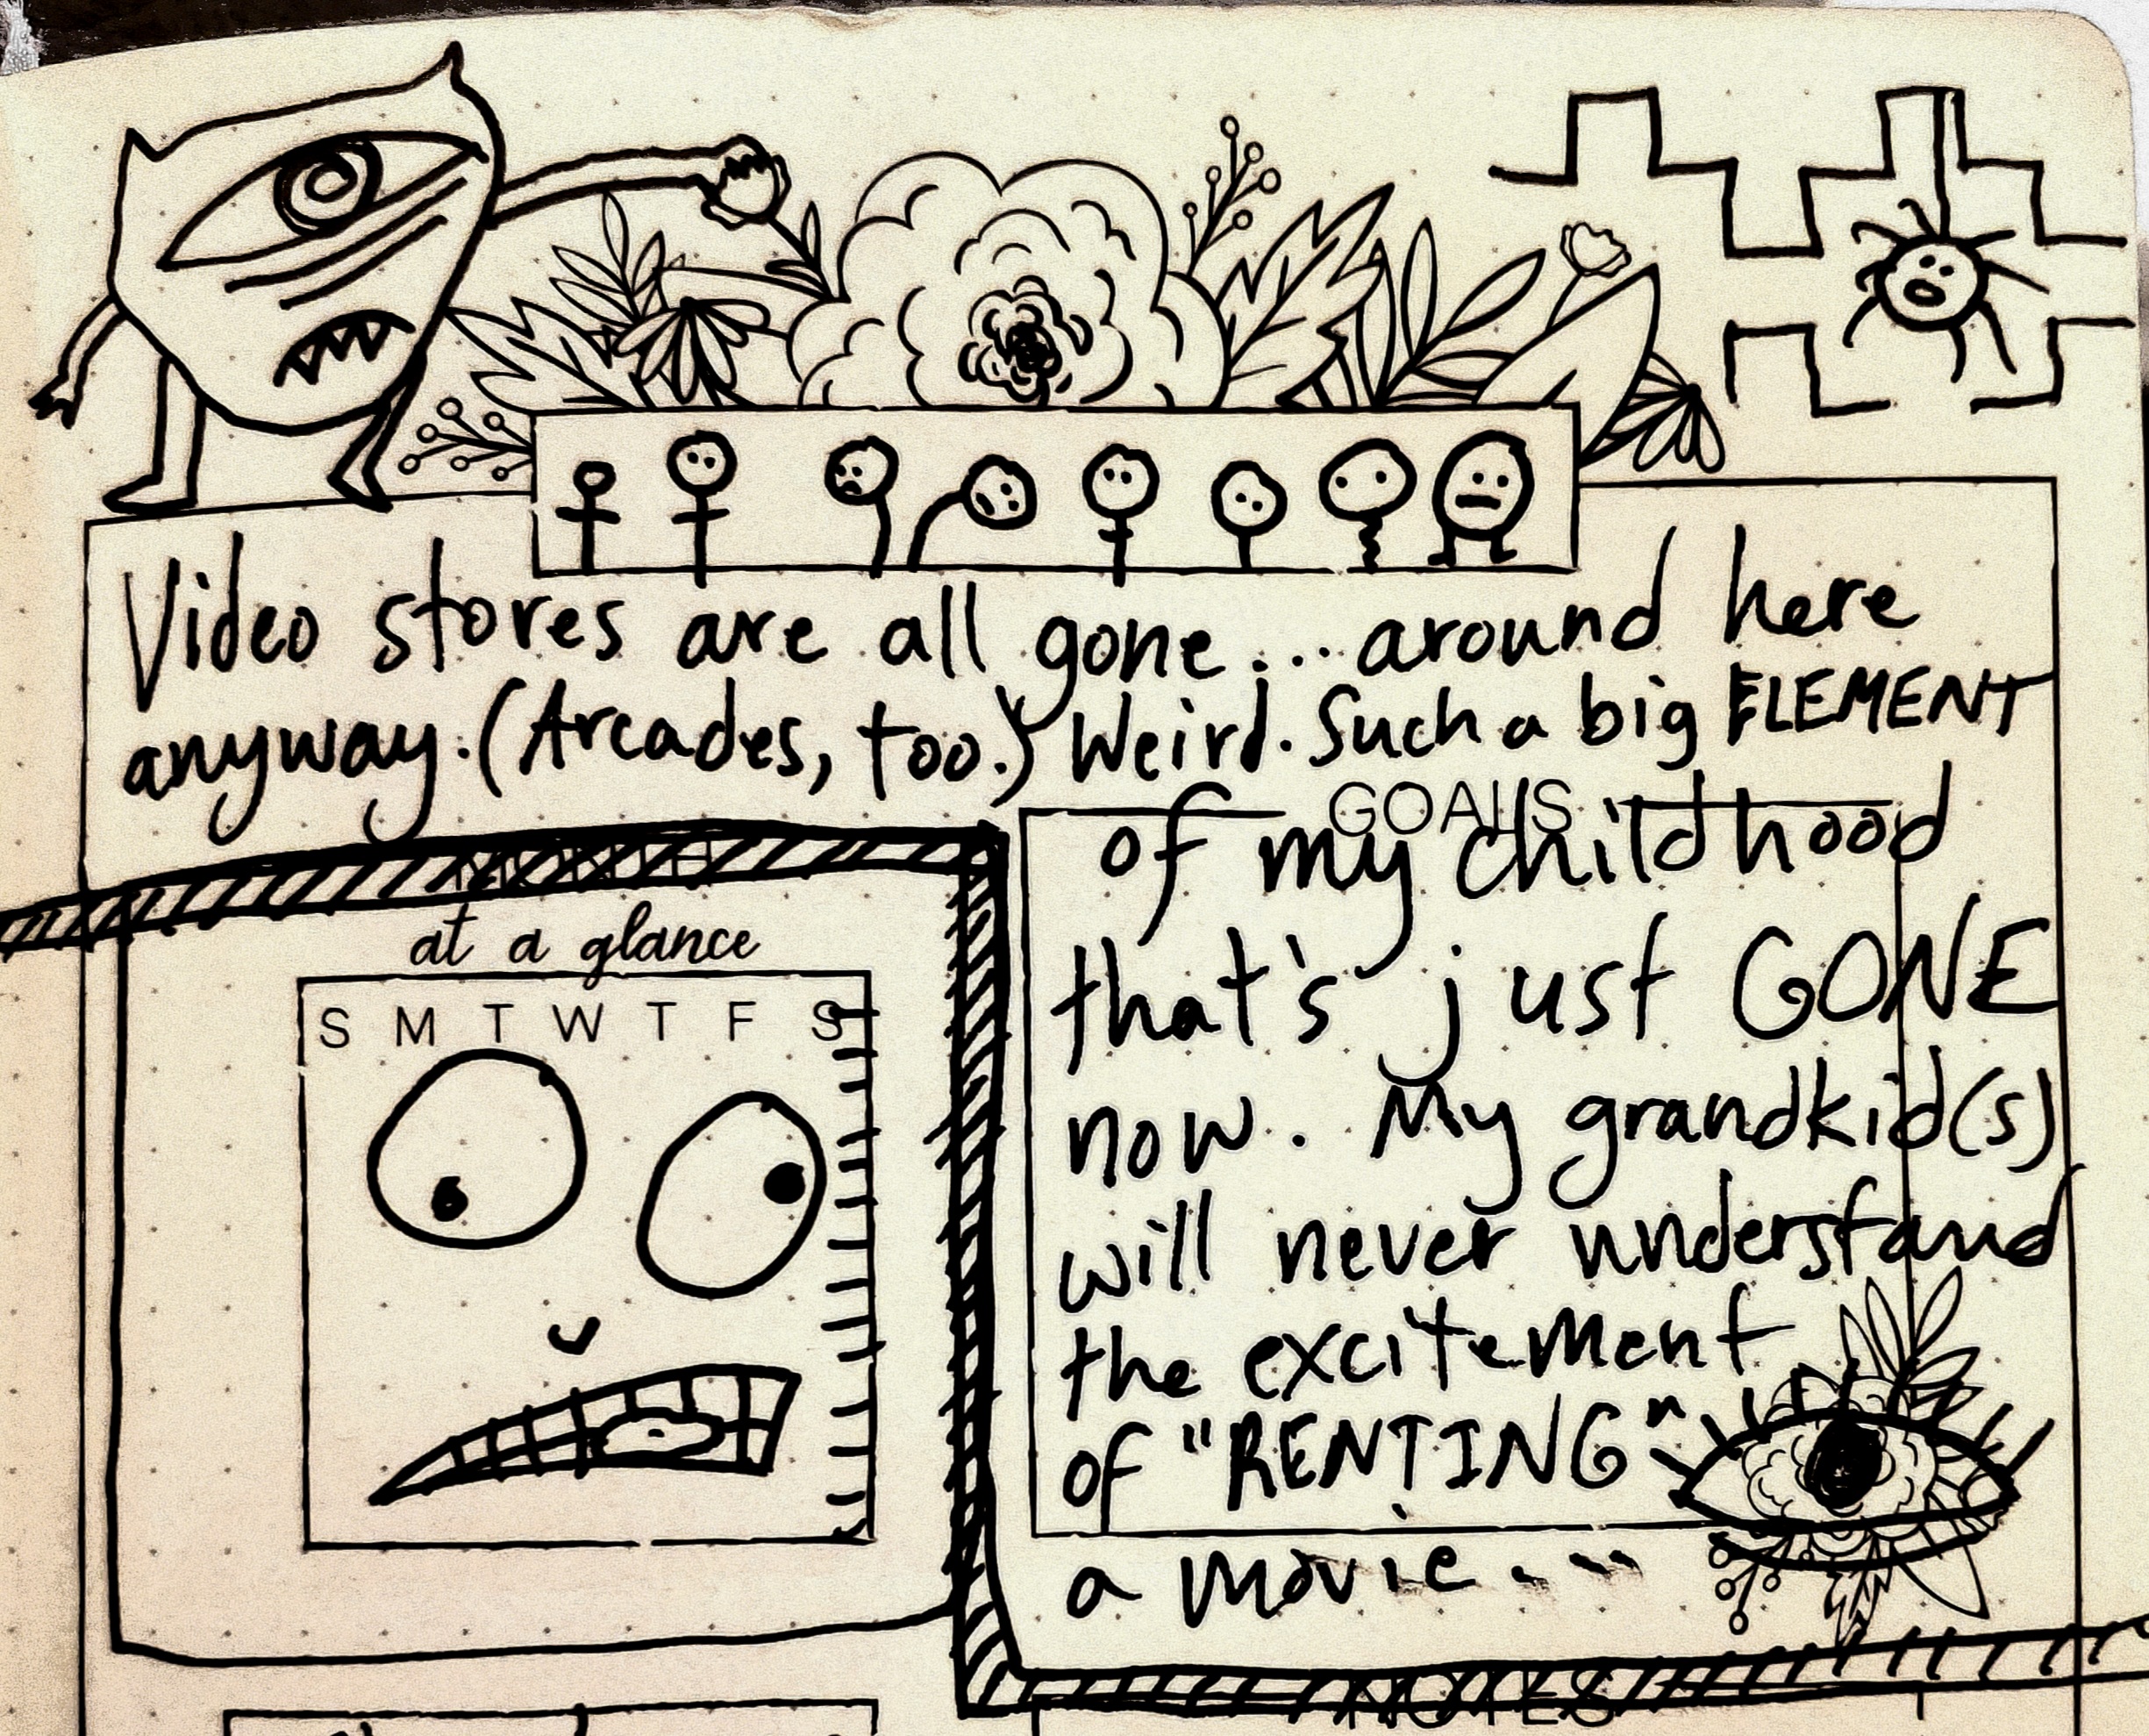 Video stores are all gone... around here
anyway. (Arcades, too.) Weird. Such a big ELEMENT
GOALS
of my childhood
that's just GONE
now. My grandkid(s)
will never understand
the excitement
of "RENTING"
a movie...
at a glance
S M T W T F S
NOTES